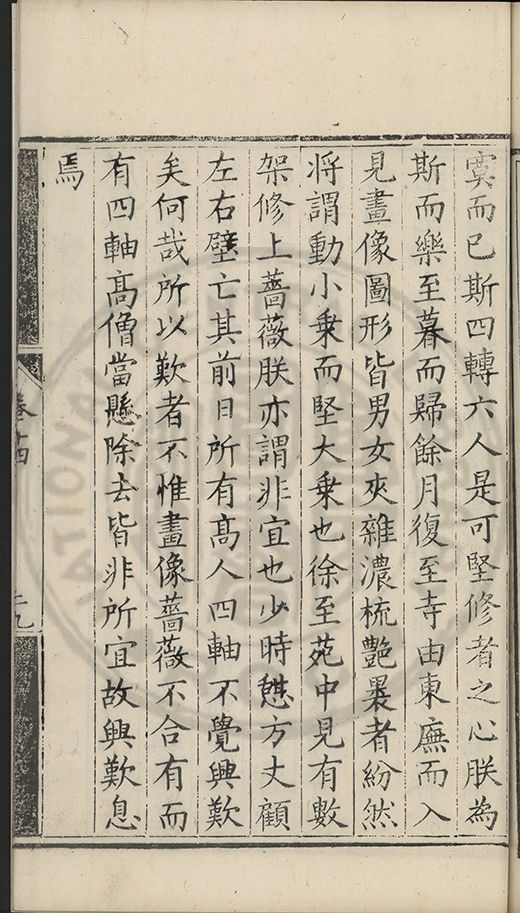 寞而已斯四轉六人是可堅修者之心朕為
斯而樂至暮而歸餘月復至寺由東廡而入
見畫像圖形皆男女夾雜濃梳艷裹者紛然
将謂動小乗而堅大乗也徐至苑中見有數
架修上薔薇朕亦謂非宜也少時憇方丈顧
左右壁亡其前日所有髙人四軸不覺興歎
矣何哉所以歎者不惟畫像薔薇不合有而
有四軸髙僧當懸除去皆非所宜故興歎息
焉
卷十四